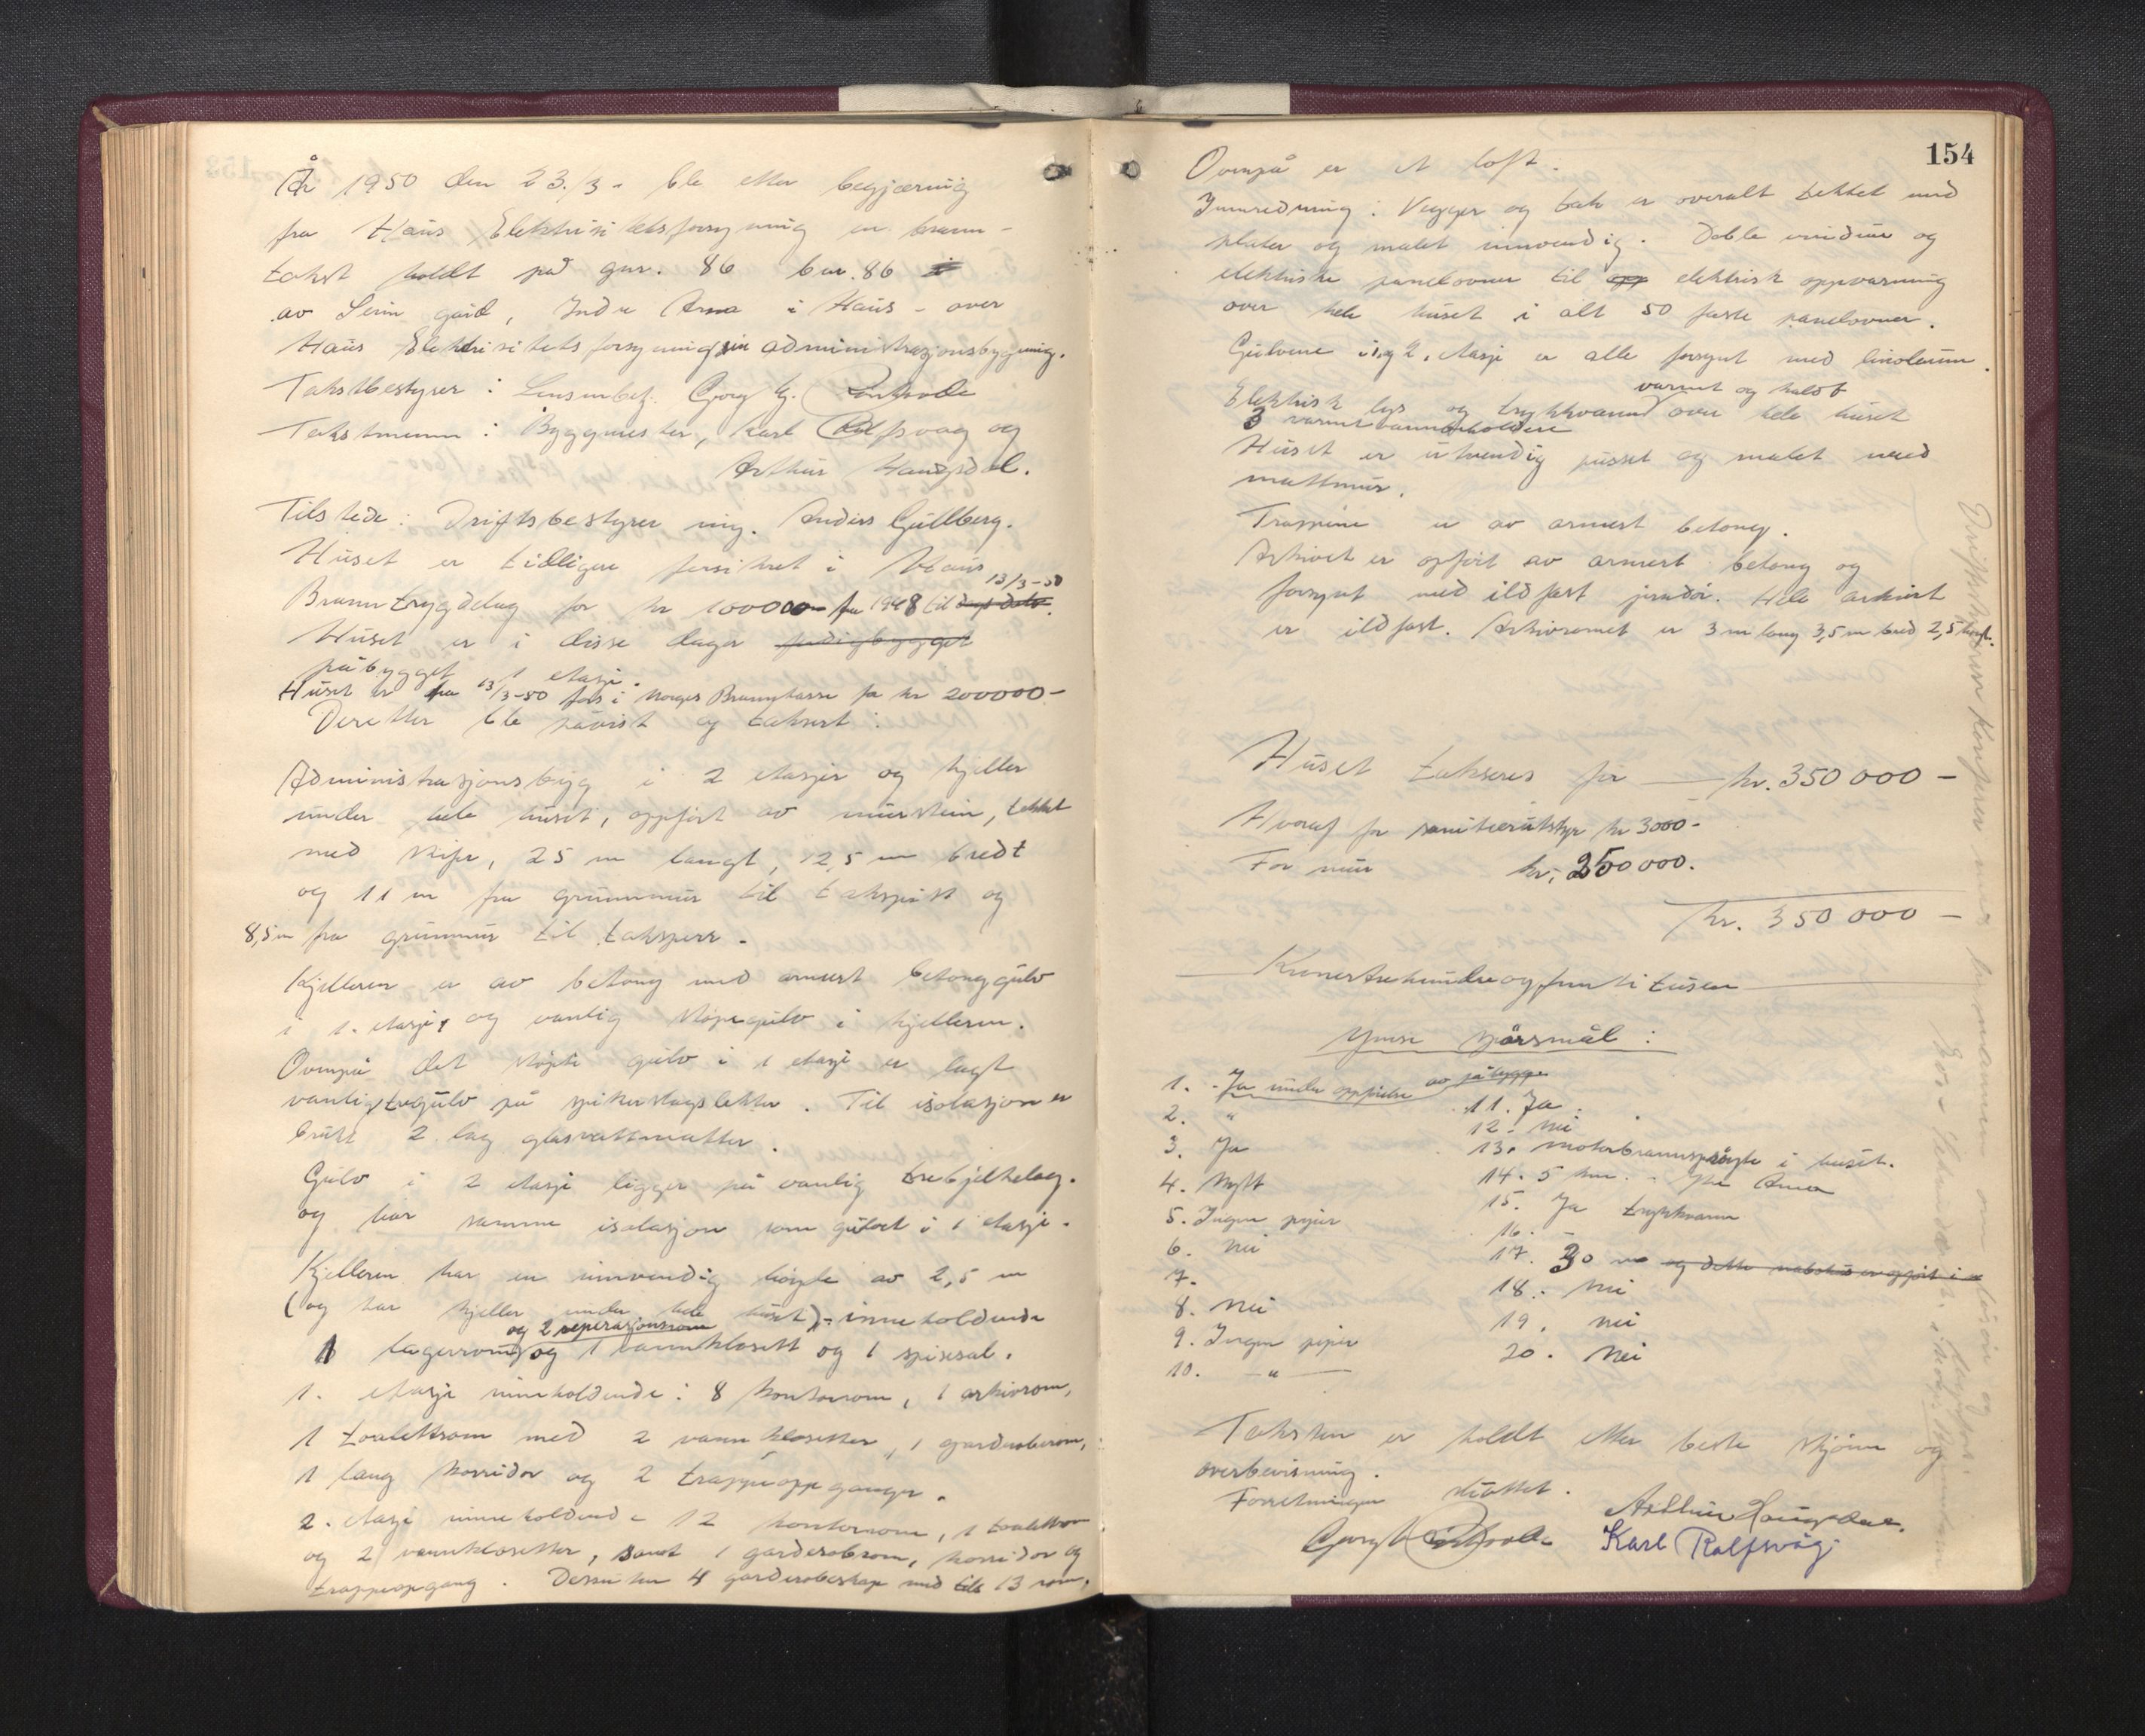 År 1950 den 23./3. ble etter begjæring
fra Haus Elektrisitetsforsyning en brann-
takst holdt på gnr. 86 bnr. 86
av Seim gård, Indre Arna i Haus - over
Haus Elektrisitetsforsyning sin administrasjonsbygning.
Takstbestyrer: Lensmbetj. Georg
Takstmenn: Byggmester, Karl Rolfsvåg og
Arthur Haugdal.
Tilstede: Driftsbestyrer ing. Anders Gullberg.
Huset er tidligere forsikret i Haus
13/3-50
Branntrygdelag for kr 100000 fra 1948 til dags dato.
Huset er i disse dager ferdigbygget
påbygget 1 etasje.
Huset er fra 13/3-50 fors i Norges Brannkasse for kr 200000-
Deretter ble påvist og taksert:
Administrasjonsbygg i 2 etasjer og kjeller
under hele huset, oppført av murstein, tekket
med skifer, 25 m langt, 12,5 m bredt
og 11 m fra grunnmur til takspiss og
8,5 m fra grunnmur til taksperr.
Kjelleren er av betong med armert betonggulv
i 1. etasje, og vanlig støpegulv i kjelleren.
Ovenpå det støpte gulv i 1 etasje er lagt
vanlig tregulv på spikerslagslekter. Til isolasjon er
brukt 2 lag glasvattmatter.
Gulv i 2 etasje ligger på vanlig trebjelkelag.
og har samme isolasjon som gulvet i 1 etasje.
Kjelleren har en innvendig høyde av 2,5 m
(og har kjeller under hele huset) - inneholdende
og 2 reperasjonsrom
1 lagerrom og 1 vannklosett og 1 spisesal.
1. etasje inneholdende: 8 kontorrom, 1 arkivrom,
1 toalettrom med 2 vannklosetter, 1 garderoberom,
1 lang korridor og 2 trappeoppganger.
2. etasje inneholdende 12 kontorrom, 1 toalettrom
og 2 vannklosetter, samt 1 garderoberom, korridor og
trappeopgang. Dessuten 4 garderobeskap med til 13 rom.
154
Ovenpå er et loft.
Innredning: Vegger og tak er overalt tekket med
plater og malet innvendig. Doble vinduer og
elektriske panelovner til opp elektrisk oppvarming
over hele huset i alt 50 faste panelovner.
Gulvene i 1. og 2. etasje er alle forsynt med linoleum.
varmt og kaldt
Elektrisk lys og trykkvann over hele huset
3 varmtvannbeholdere
Huset er utvendig pusset og malet med
mattmur.
Trappene er av armert betong.
Arkivet er opført av armert betong og
forsynt med ildfast jerndør. Hele arkivet
er ildfast. Arkivromet er 3 m lang 3,5 m bred 2,5 høyt.
Huset takseres for — kr. 350 000 -
Hvoraf for sanitærutstyr kr 3000-
For mur kr. 250 000.
kr. 350 000 -
Kroner trehundreogfemti tusen
Ymse spørsmål:
1. Ja under oppførelse av påbygge
2. "
3. Ja
4. Nytt
5. Ingen piper
6. Nei
7.
8. Nei
9. Ingen piper
10. — " —
11. Ja.
12. Nei
13. Motorbrannsprøyte i huset.
14. 5 km. - Ytre Arna
15. Ja trykkvann
16. -
17. 30 m og dette nabohus er opført i
18. Nei
19. Nei
20. Nei
Taksten er holdt etter beste skjønn og
overbevisning.
Forretningen sluttet.
Arthur Haugdal.
Karl Rolfsvåg.